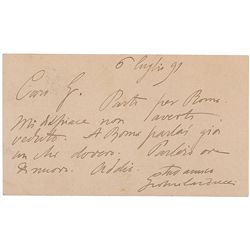 6 luglio 91
Caro G. Parto per Roma.
Mi dispiace non averti
veduto. A Roma parlai già
a chi dovevo. Parlerò
di nuovo. Addio.
tuo amico
Giosue Carducci